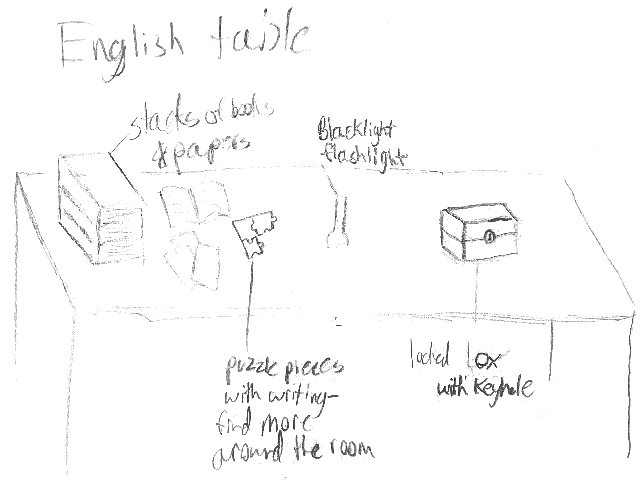 English table
stacks of books
& papers
Blacklight
flashlight
puzzle pieces
with writing-
find more
around the room
locked box
with Keyhole